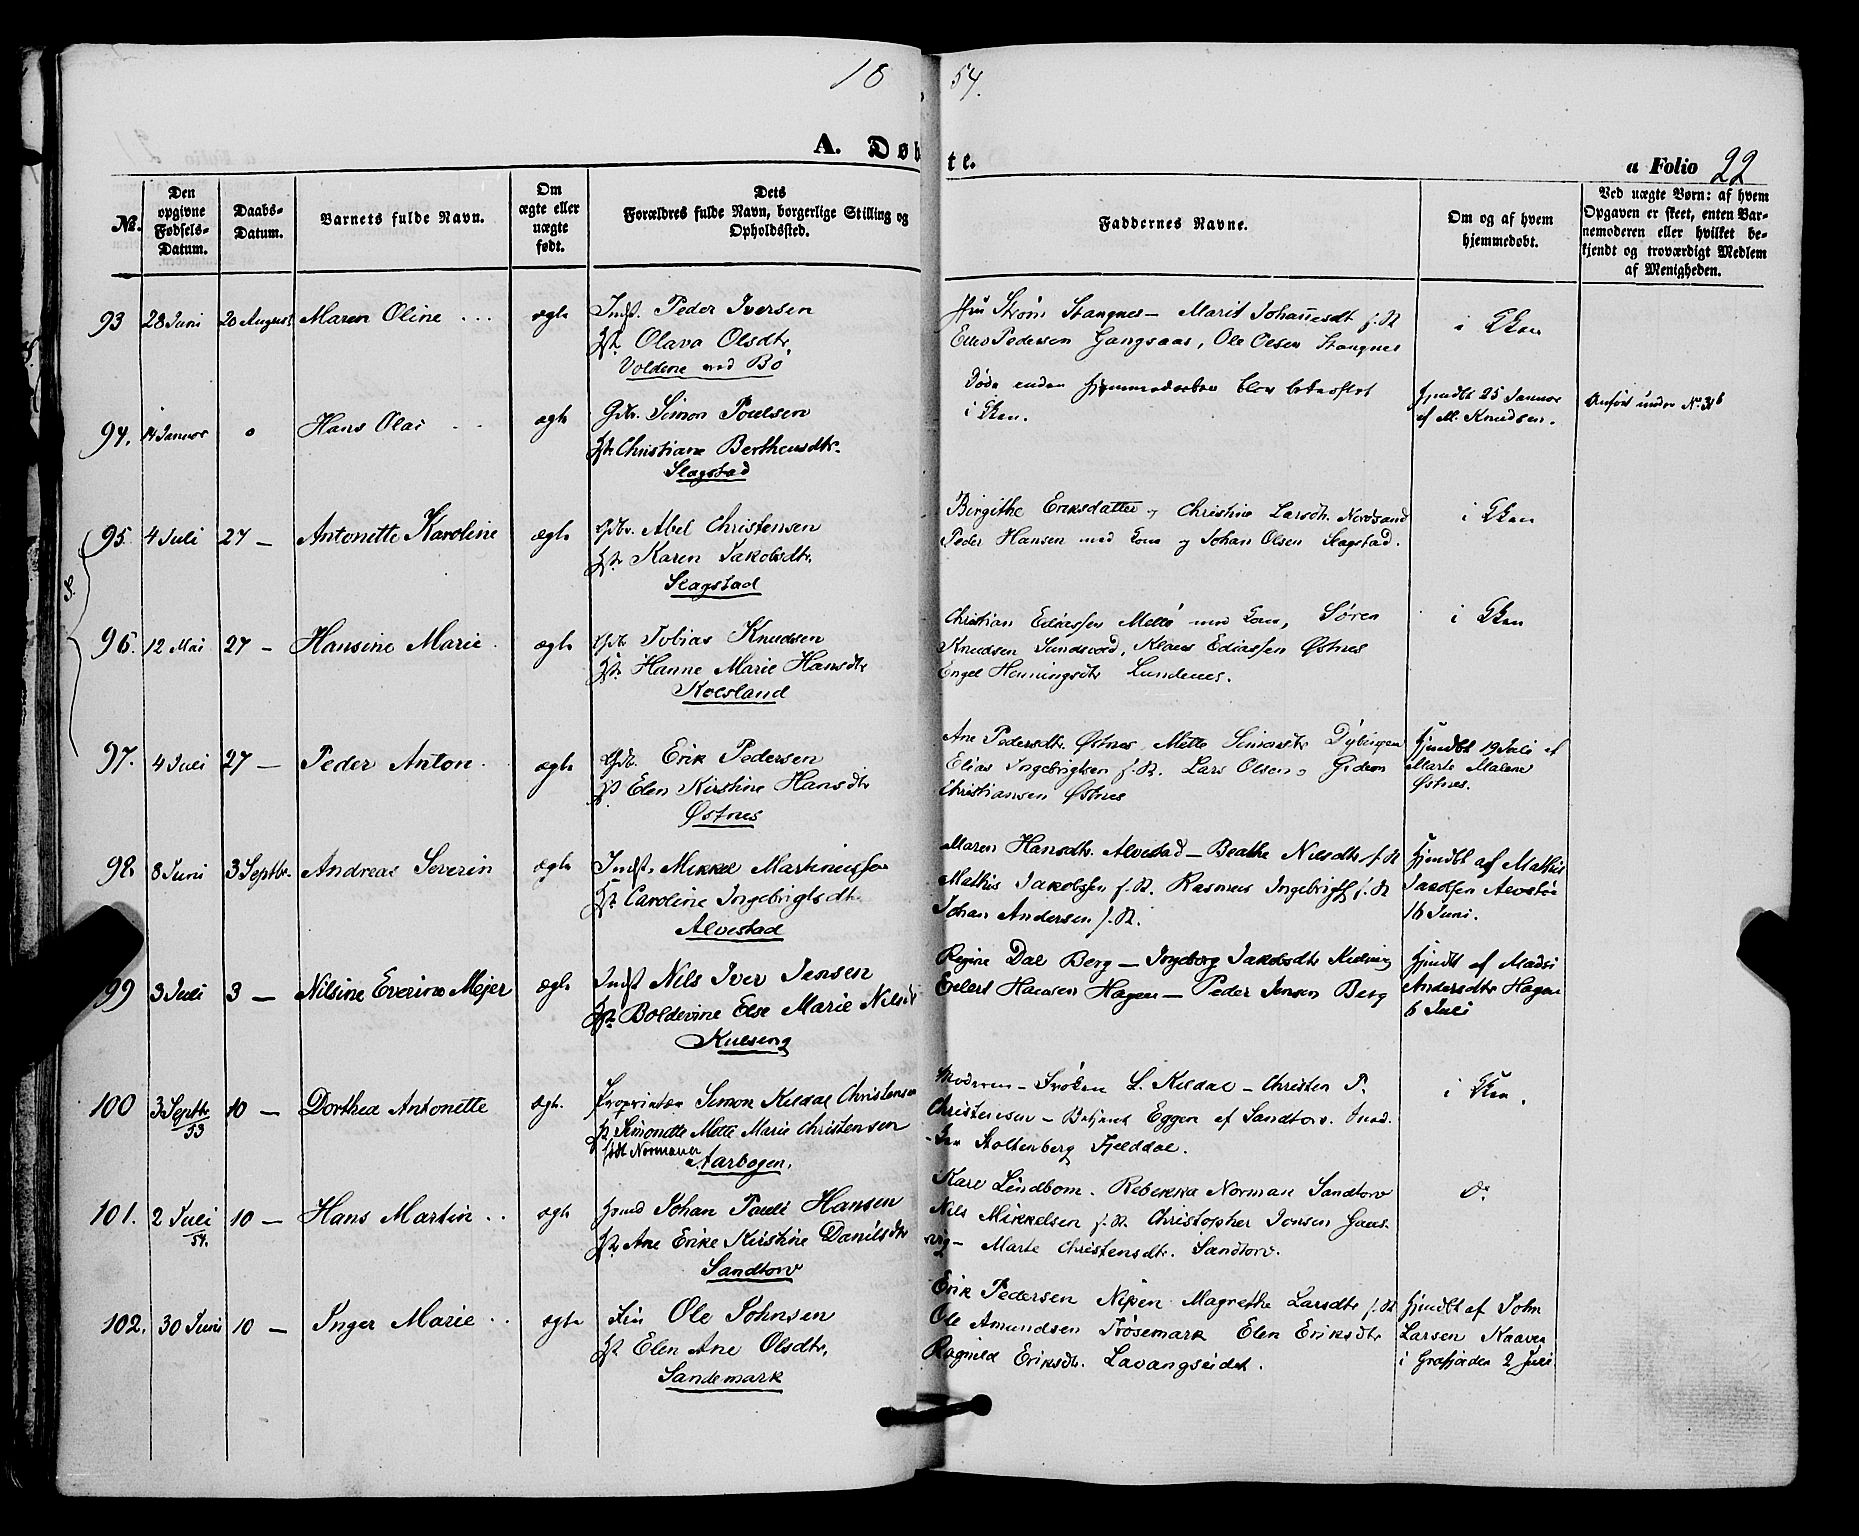 18 54.
A. Døbte.
a Folio 22
No.
Den opgivne Fødsels-Datum.
Daabs-Datum.
Barnets fulde Navn.
Om ægte eller uægte født.
Dets Forældres fulde Navn, borgerlige Stilling og Opholdssted.
Faddernes Navne.
Om og af hvem hjemmedøbt.
Ved uægte Børn: af hvem Opgaven er skeet, enten Barnemoderen eller hvilket bekjendt og troværdigt Medlem af Menigheden.
93 28 Juni 20 August Maren Oline ægte
Indst. Peder Iversen
Olava Olsdtr.
Voldene ved Bø
Strøm Stangnes – Marit Johannesdt f. St
Pedersen Gangsaas, Ole Olsen Stangnes
i Kken
94. 14 Januar o Hans Olai ægte
Gdbr. Simon Poulsen
Christiane Bertheusdtr.
Slagstad
Døde enden
i Kken.
hjmdbt 25 Januar
af M. Knudsen.
Anført under No. 31b
S.
95. 4 Juli 27 – Antonette Karoline ægte
Gdbr. Abel Christensen
Karen Jakobsdtr.
Slagstad
Birgithe Eriksdatter og Christine Larsdtr. Nordsand
Peder Hansen med Kone og Johan Olsen Slagstad.
i Kken
96. 12 Mai 27 – Hansine Marie ægte
Gdbr Tobias Knudsen
Hanne Marie Hansdtr
Kolsland
Christian Ediassen Melø med Kone, Søren
Knudsen Sundsvold, Klaus Ediassen Østnes
Engel Henningsdtr Lundenes.
i Kken
97. 4 Juli 27 – Peder Anton ægte
Gdbr. Erik Pedersen
Elen Kirstine Hansdtr
Østnes
Ane Pedersdtr. Østnes, Mette Simonsdtr Dybingen
Elias Ingebrigtsen f. St. Lars Olsen og Gideon
Christiansen Østnes
hjmdbt 19 Juli af
Marte Malene
Østnes.
98. 8 Juni 3 Septbr. Andreas Severin ægte
Indst. Mikkel Martinussen
Caroline Ingebrigtsdtr.
Alvestad
Maren Hansdtr. Alvestad – Beathe Nilsdtr f. St
Mathis Jakobsen f. St. Rasmus Ingebrigts. f. St
Johan Andersen f. St.
hjmdbt af Mathis
Jacobsen
16 Juni.
99 3 Juli 3 – Nilsine Everine Mejer ægte
Indst Nils Iver Jensen
Boldevine Else Marie Nilsdt
Kulseng
Regine Dal Berg – Ingeborg Jakobsdtr Kulseng
Eilert Hansen Hagen – Peder Jensen Berg
hjmdbt af Madsi
Andersdtr Hagen
6 Juli
100 3 Septbr 53 10 – Dorthea Antonette ægte.
Proprietær Simon Kildal Christensen
Simondte Mette Marie Christensen
født Normann
Aarbogen.
Moderen – Frøken L. Kildal – Christen P.
Christensen – Betjent Eggen af Sandtorv.
Stoltenberg Fjelddal.
i Kken.
101. 2 Juli 54. 10 – Hans Martin ægte
Johan Pauli Hansen
Ane Erike Kirstine Danilsdtr
Sandtorv
Kare Lindbom. Rebekka Norman Sandtorv
Nils Mikkelsen f. St Christopher Jonsen Gaas-
vig – Marte Christensdtr. Sandtorv.
do
102. 30 Juni 10 – Inger Marie ægte
Fin Ole Johnsen
Elen Ane Olsdtr.
Sandemark
Erik Pedersen Nipen Magrethe Larsdtr f. St
Ole Amundsen Trøsemark Elen Eriksdtr
Ragnild Eriksdtr. Lavangseidet.
hjmdbt af John
Larsen Kaaven
i Grafjorden 2 Juli